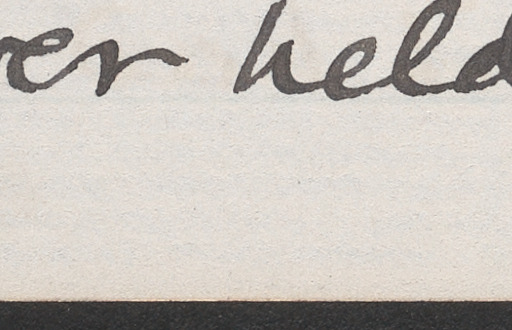 ver held